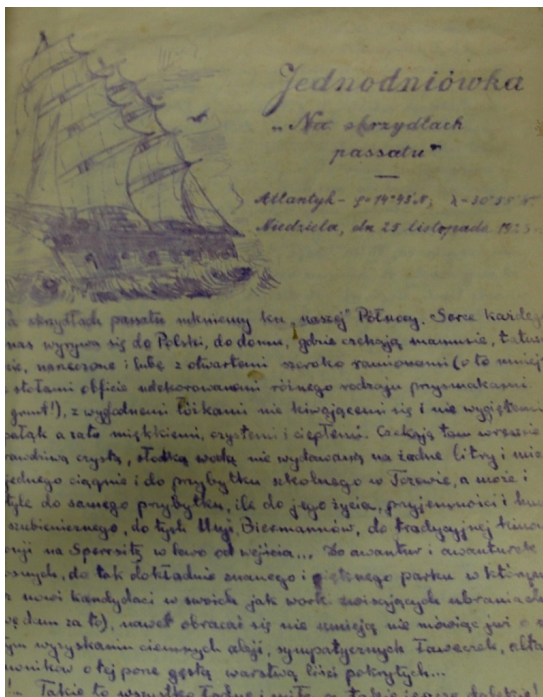 Jednodniówka
„Na skrzydłach
passatu"
Atlantyk - φ=14°48'N, λ=30°
Niedziela, dn 25 listopada 192
skrzydłach passatu mkniemy ku „naszej" Północy. Serce każdego
nas wyrywa się do Polski, do domu, gdzie czekają mamusie, tatusi
narzeczone i lube z otwartemi szeroko ramionami (o to mniej
stołami obficie udekorowanemi różnego rodzaju przysmakami
grunt!), z wygodnemi łóżkami nie kiwającemi się i nie wygiętemi
pałąk a zato miękkiemi, czystemi i ciepłemi. Czekają tam wreszcie
czysta, słodka woda nie wydawana na żadne litry i
jednego ciągnie i do przybytku szkolnego w Tczewie, a może i
tyle do samego przybytku, ile do jego życia, przyjemności i
szubienicznego, do tych do tradycyjnej
na w lewo od wejścia... Do awantur i awanturek
do tak dokładnie znanego i pięknego parku w którym
nowi kandydaci w swoich jak work zwisających ubraniach
za to), nawet obracać się nie umieją nie mówiąc już o
wyzyskaniu ciemnych alej, sympatycznych ławeczek,
o tej porze gęstą warstwą liści pokrytych...
Takie to wszystko ładne i miłe